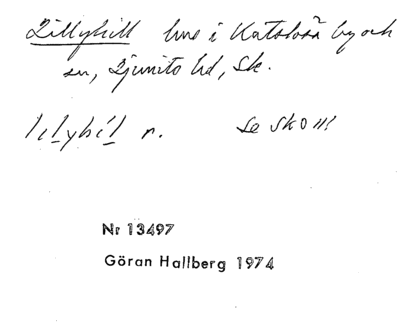 Lillyhill hus i Katslösa by och
sn, Ljunits hd, Sk.
lilyhil n. Se Sk O III
Nr 13497
Göran Hallberg 1974